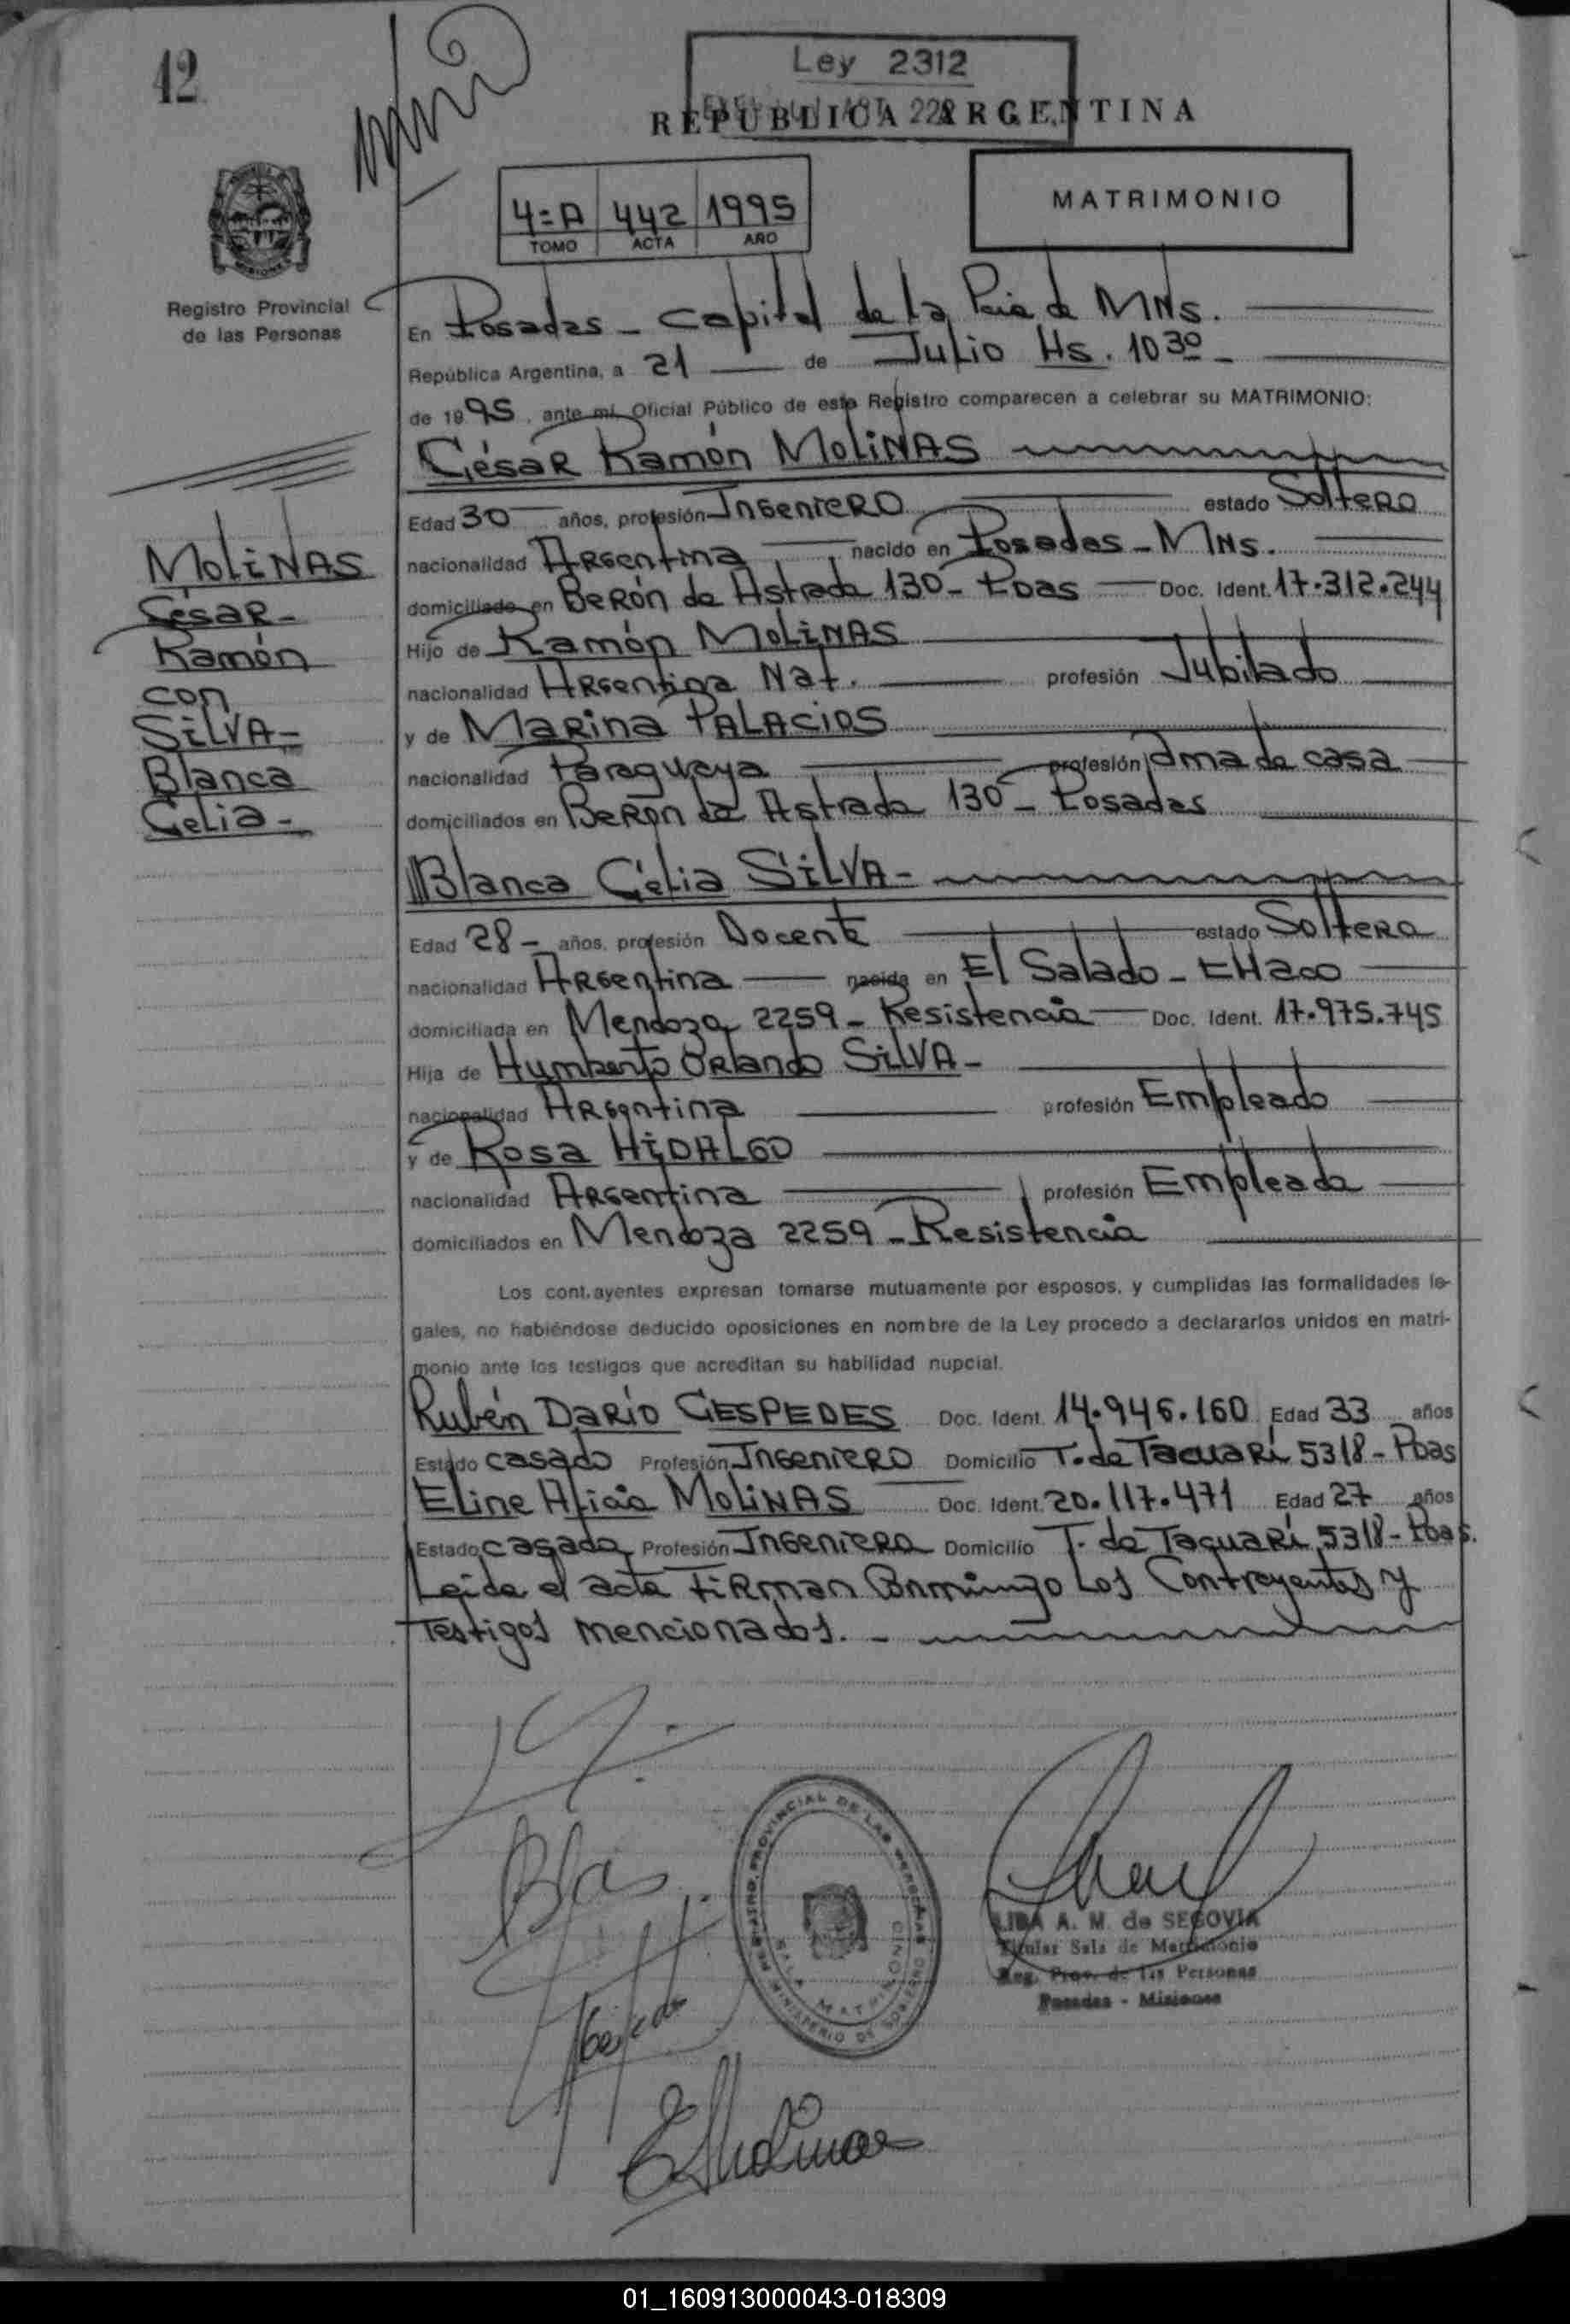 42
Ley 2312
REPUBLICA ARGENTINA
4=A 442 1995
TOMO ACTA AÑO
MATRIMONIO
Registro Provincial
de las Personas
En Posadas - Capital de la Pcia de MNS.
República Argentina, a 21 de Julio Hs. 10 30 -
de 1995, ante mí, Oficial Público de este Registro comparecen a celebrar su MATRIMONIO:
César Ramón MOLINAS
Edad 30 años, profesión Ingeniero estado Soltero
nacionalidad Argentina nacido en Posadas - MNS.
domiciliado en Berón de Astrada 130 - Pdas Doc. Ident. 17.312.244
Hijo de Ramón MOLINAS
nacionalidad Argentina Nat. profesión Jubilado
y de Marina PALACIOS
nacionalidad Paraguaya profesión ama de casa
domiciliados en Berón de Astrada 130 - Posadas
MOLINAS
César -
Ramón
con
SILVA -
Blanca
Celia -
Blanca Celia SILVA -
Edad 28 - años, profesión Docente estado Soltera
nacionalidad Argentina nacida en El Salado - CHaco
domiciliada en Mendoza 2259 - Resistencia Doc. Ident. 17.975.745
Hija de Humberto Orlando SILVA -
nacionalidad Argentina profesión Empleado
y de Rosa HIDALGO
nacionalidad Argentina profesión Empleada
domiciliados en Mendoza 2259 - Resistencia
Los contrayentes expresan tomarse mutuamente por esposos, y cumplidas las formalidades le-
gales, no habiéndose deducido oposiciones en nombre de la Ley procedo a declararlos unidos en matri-
monio ante los testigos que acreditan su habilidad nupcial.
Rubén Darío CESPEDES Doc. Ident. 14.946.160 Edad 33 años
Estado casado Profesión Ingeniero Domicilio T. de Tacuarí 5318 - Pdas
Eline Alicia MOLINAS Doc. Ident. 20.117.471 Edad 27 años
Estado casada Profesión Ingeniera Domicilio T. de Tacuarí 5318 - Pdas.
Leída el acta Firman Conmigo Los Contrayentes y
Testigos mencionados. -
REGISTRO PROVINCIAL DE LAS PERSONAS
SALA MATRIMONIO
MINISTERIO DE GOBIERNO
LIBA A. M. de SEGOVIA
Titular Sala de Matrimonio
Reg. Prov. de las Personas
Posadas - Misiones
EMolinas
01_160913000043-018309